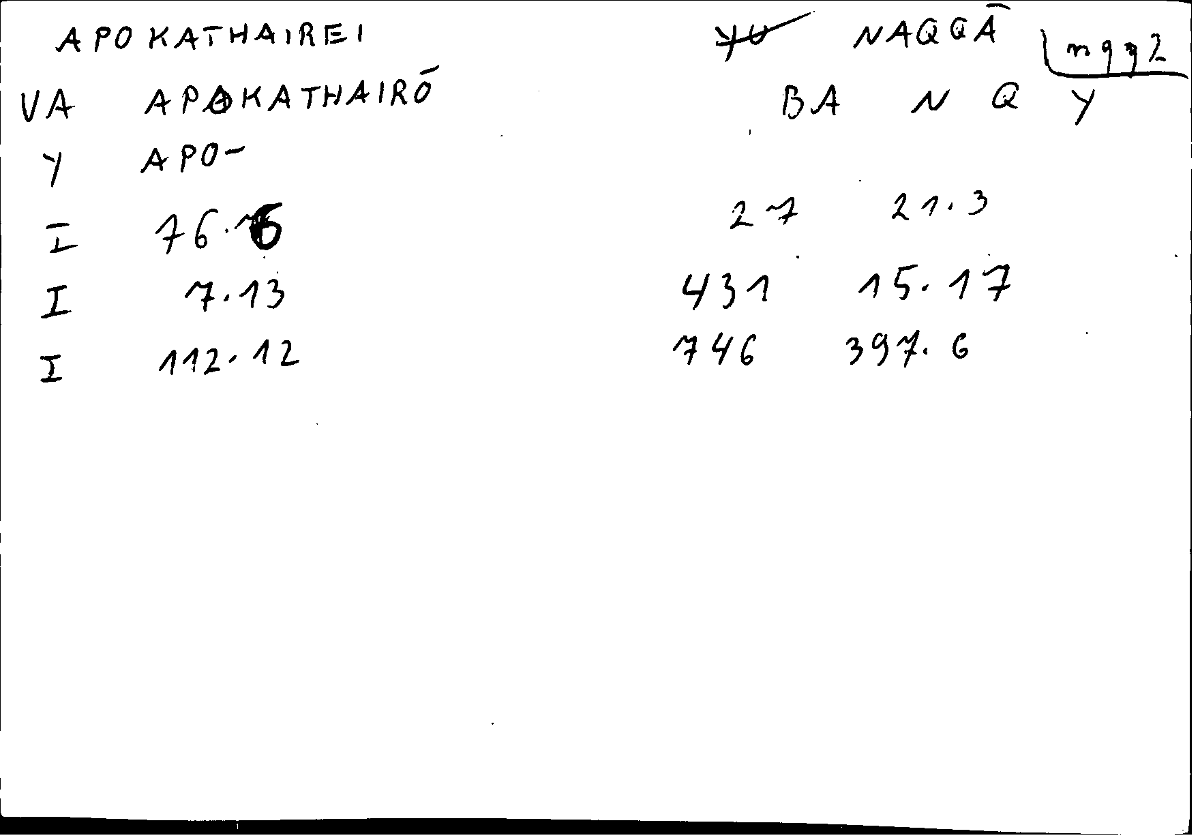 APOKATHAIREI NAQQĀ nqq2
VA APOKATHAIRŌ BA N Q Y
Y APO-
I 76.6 27 21.3
I 7.13 431 15.17
I 112.12 746 397.6